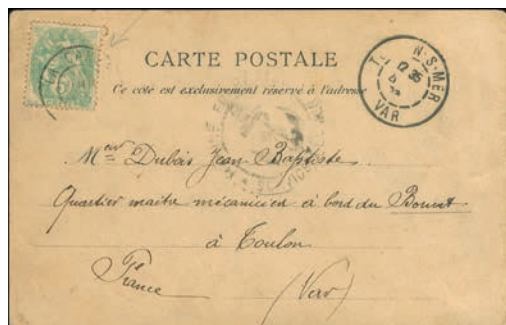 CARTE POSTALE
Ce côté est exclusivement réservé à l'adresse
N-S-MER
12 35
VAR
Mr Dubois Jean Baptiste
Quartier maitre mécanicien à bord du Bouvet
à Toulon
France (Var)